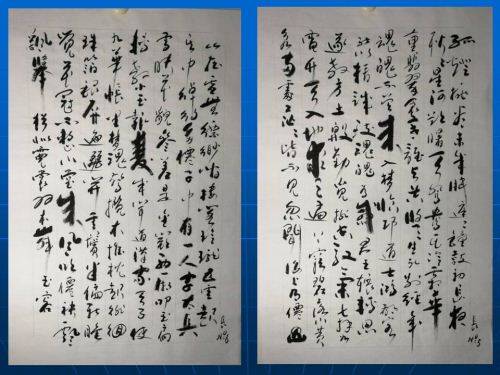 孤灯挑尽未成眠迟迟钟鼓初长夜
耿耿星河欲曙天鸳鸯瓦冷霜华
重翡翠衾寒谁与共悠悠生死别经年
魂魄不曾来入梦临邛道士鸿都客
能以精诚致魂魄为感君王辗转思
遂教方士殷勤觅排空驭气奔如
电升天入地求之遍上穷碧落下黄
泉两处茫茫皆不见忽闻海上有仙山
山在虚无缥缈间楼阁玲珑五云起
其中绰约多仙子中有一人字太真
雪肤花貌参差是金阙西厢叩玉扃
转教小玉报双成闻道汉家天子使
九华帐里梦魂惊揽衣推枕起徘徊
珠箔银屏迤逦开云鬓半偏新睡
觉花冠不整下堂来风吹仙袂飘
飘举犹似霓裳羽衣舞玉容